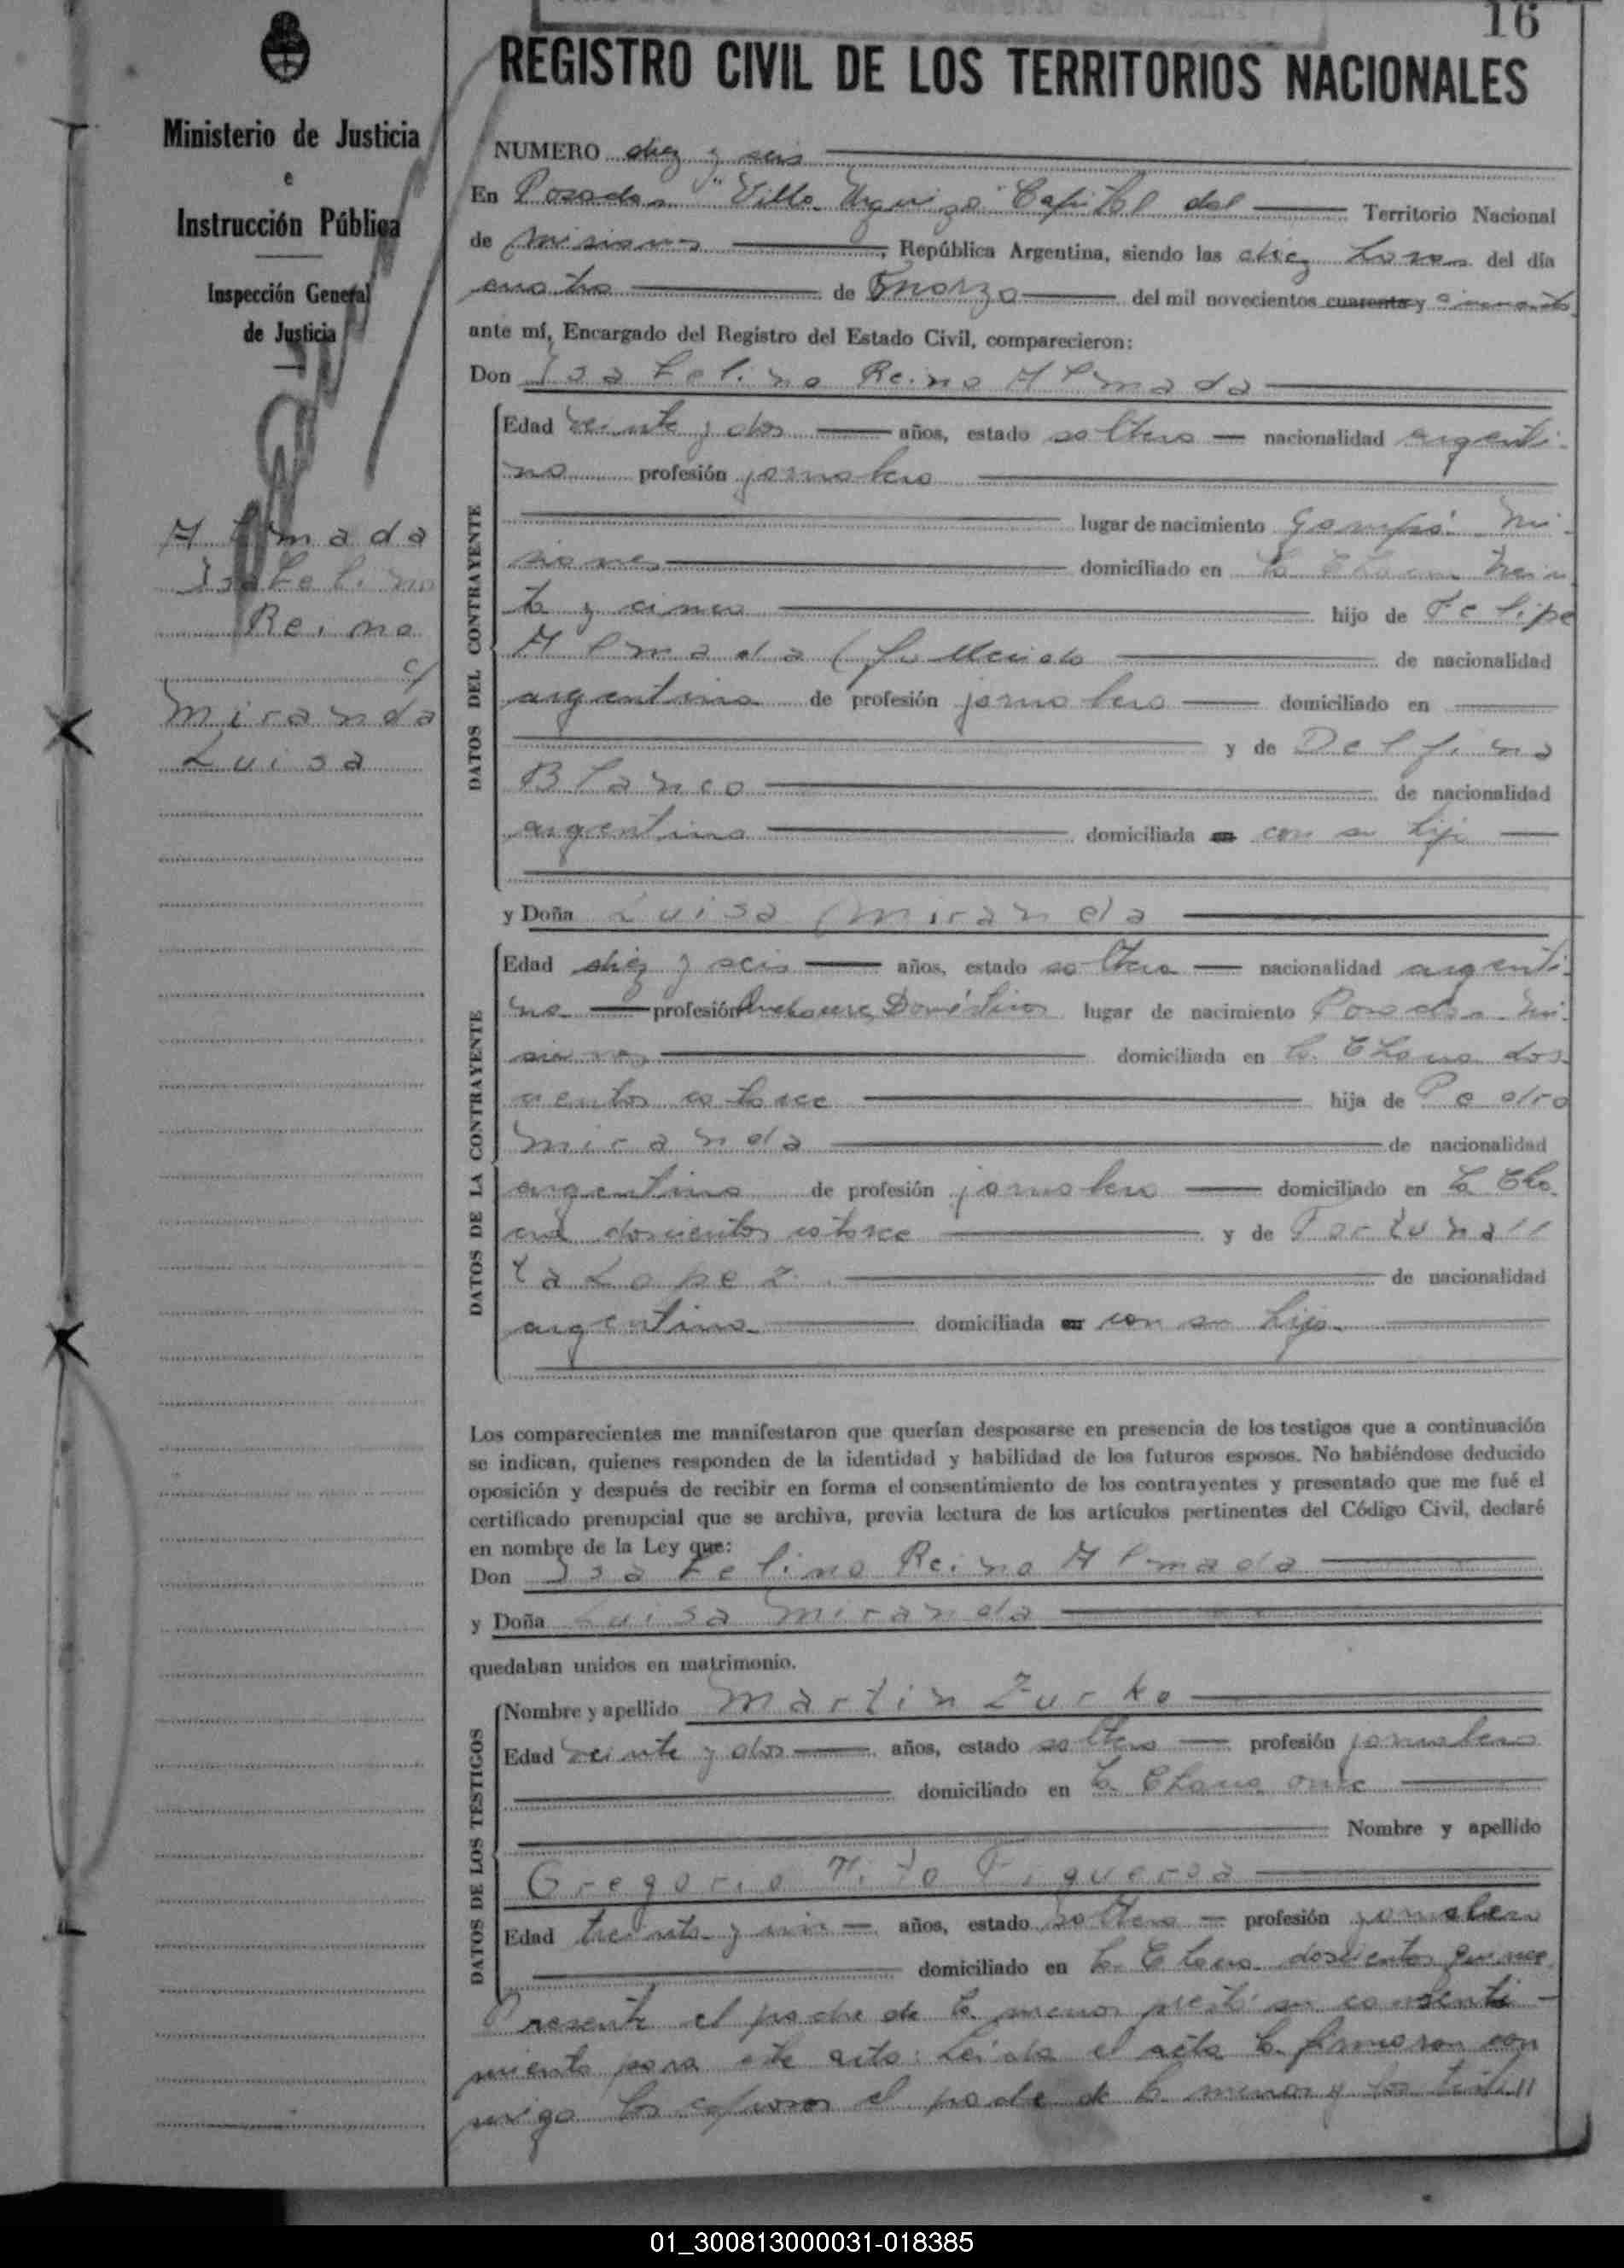 16
REGISTRO CIVIL DE LOS TERRITORIOS NACIONALES
Ministerio de Justicia
e
Instrucción Pública
Inspección General
de Justicia
Almada
Isabelino
Reino
c/
Miranda
Luisa
NUMERO diez y seis
En Posadas "Villa Urquiza" Capital del Territorio Nacional
de Misiones, República Argentina, siendo las diez horas del día
cuatro de Marzo del mil novecientos cuarenta y cincuenta
ante mí, Encargado del Registro del Estado Civil, comparecieron:
Don Isabelino Reino Almada
DATOS DEL CONTRAYENTE
Edad veinte y dos años, estado soltero nacionalidad argenti-
no profesión jornalero
lugar de nacimiento Garupá Mi-
siones domiciliado en la Chacra trein
ta y cinco hijo de Felipe
Almada (fallecido de nacionalidad
argentina de profesión jornalero domiciliado en
y de Delfina
Blanco de nacionalidad
argentina domiciliada en con su hijo
y Doña Luisa Miranda
DATOS DE LA CONTRAYENTE
Edad diez y seis años, estado soltera nacionalidad argenti-
na profesión Quehaceres Domésticos lugar de nacimiento Posadas Mi-
siones domiciliada en la Chacra dos-
cientos catorce hija de Pedro
Miranda de nacionalidad
argentina de profesión jornalero domiciliado en la Cha-
cra doscientos catorce y de Fortuna//
ta Lopez de nacionalidad
argentina domiciliada en con su hija
Los comparecientes me manifestaron que querían desposarse en presencia de los testigos que a continuación
se indican, quienes responden de la identidad y habilidad de los futuros esposos. No habiéndose deducido
oposición y después de recibir en forma el consentimiento de los contrayentes y presentado que me fué el
certificado prenupcial que se archiva, previa lectura de los artículos pertinentes del Código Civil, declaré
en nombre de la Ley que:
Don Isabelino Reino Almada
y Doña Luisa Miranda
quedaban unidos en matrimonio.
DATOS DE LOS TESTIGOS
Nombre y apellido Martin Zurko
Edad veinte y dos años, estado soltero profesión jornalero
domiciliado en la Chacra once
Nombre y apellido
Gregorio Tito Figueroa
Edad treinta y un años, estado soltero profesión jornalero
domiciliado en la Chacra doscientos quince
Presente el padre de la menor prestó su consenti-
miento para este acto: Leída el acta la firmaron con
migo los esposos el padre de la menor y los testi//
01_300813000031-018385